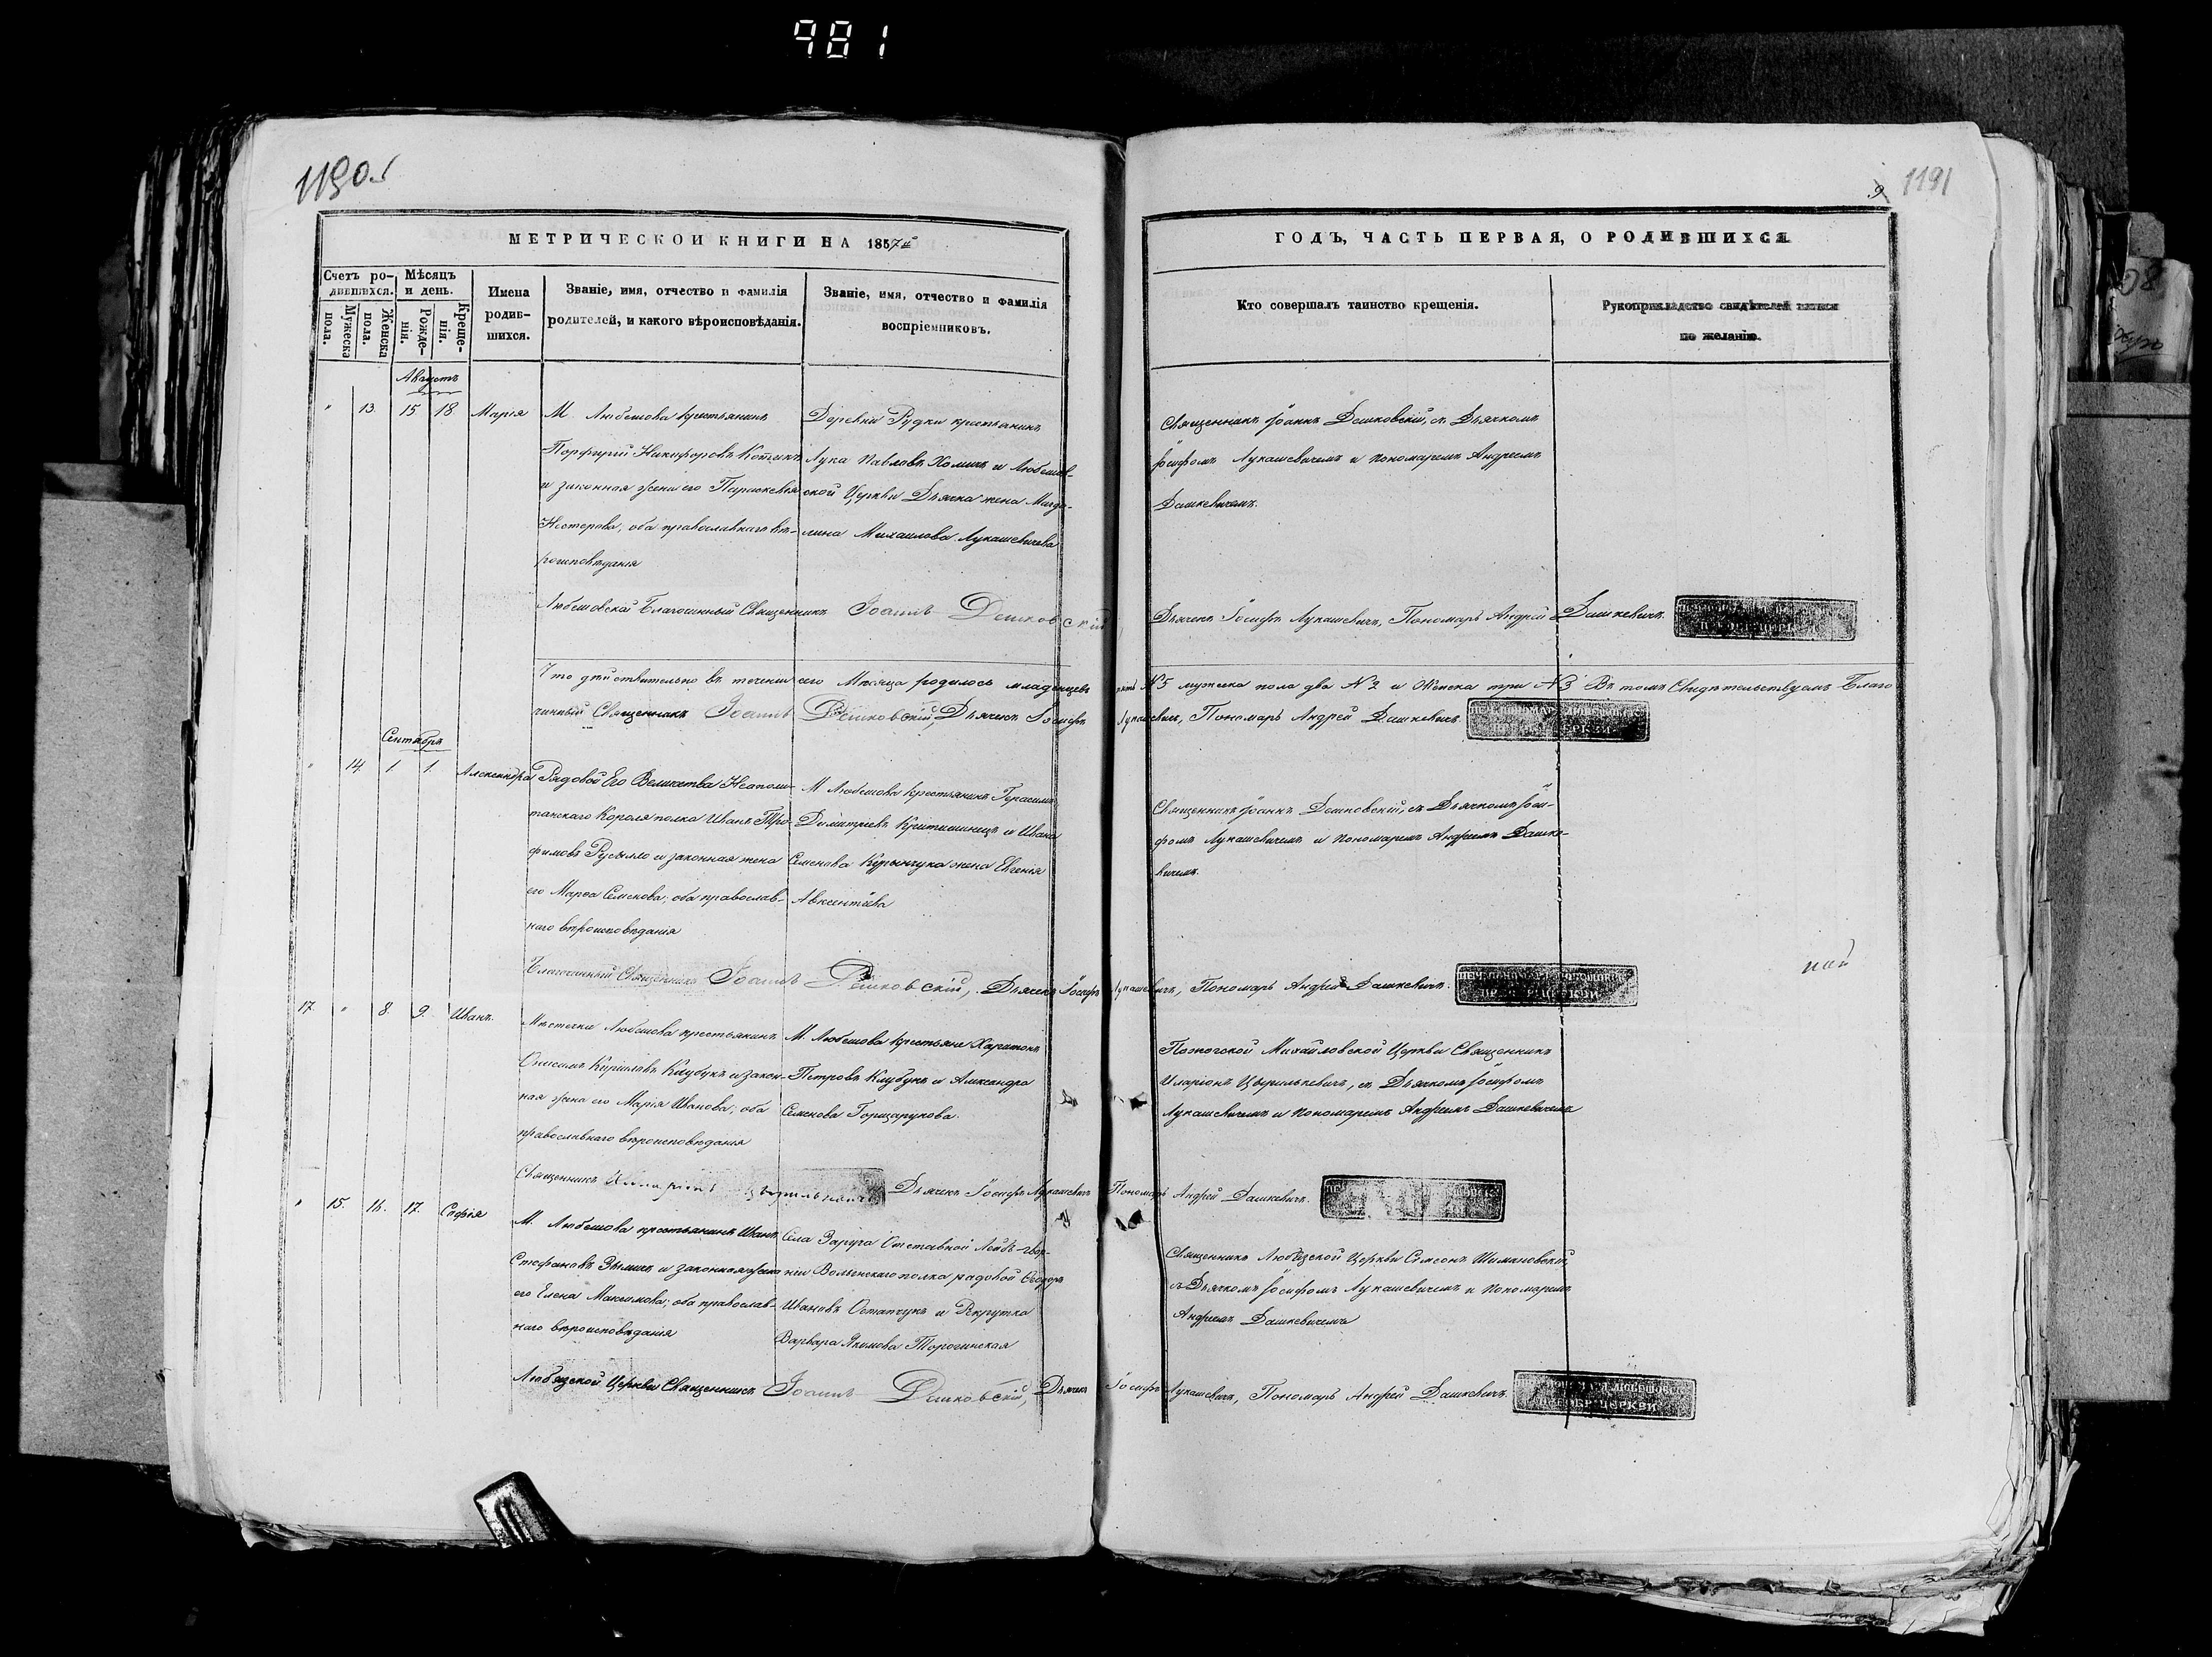 981
1190
9 1191
МЕТРИЧЕСКОЙ КНИГИ НА 1857й
ГОДЪ, ЧАСТЬ ПЕРВАЯ, О РОДИВШИХСЯ
Счетъ ро-
дившихся.
Мужеска пола.
Женска пола.
Мѣсяцъ
и день.
Рожде-
нія.
Креще-
нія.
Имена
родив-
шихся.
Званіе, имя, отчество и фамилія
родителей, и какого вѣроисповѣданія.
Званіе, имя, отчество и фамилія
воспріемниковъ.
Кто совершалъ таинство крещенія.
Рукоприкладство свидѣтелей записи
по желанію.
Августъ
" 13. 15 18 Марія
М Любешова крестьянинъ
Порфирій Никифоровъ Котикъ
и законная жена его Параскевія
Нестерова, оба православнаго вѣ-
роисповѣданія
Деревни Рудки крестьянинъ
Лука Павловъ Хомичъ и Любешов-
ской Церкви Дьячка жена Магда-
лина Михаилова Лукашевичева
Священникъ Іоаннъ Дешковскій, съ Дьячкомъ
Іосифомъ Лукашевичемъ и пономаремъ Андреемъ
Дашкевичемъ.
Любешовскій Благочинный Священникъ Іоаннъ Дешковскій, Дьячекъ Іосифъ Лукашевичъ, Пономарь Андрей Дашкевичъ.
Что дѣйствительно въ теченіи сего Мѣсяца родилось младенцевъ пять №5 мужеска пола два №2 и Женска три №3 Въ томъ Свидѣтельствуемъ Благо
чинный Священникъ Іоаннъ Дешковскій, Дьячекъ Іосифъ Лукашевичъ, Пономарь Андрей Дашкевичъ.
Сентябрь
" 14. 1. 1. Александра
Рядовой Его Величества Неаполи-
танскаго Короля полка Иванъ Тро-
фимовъ Русымо и законная жена
его Марѳа Семенова; оба православ-
наго вѣроисповѣданія
М Любешова крестьянинъ Герасимъ
Димитріевъ и Ивана
Семенова жена Евгенія
Авксентіева
Священникъ Іоаннъ Дешковскій, съ Дьячкомъ Іоси-
фомъ Лукашевичемъ и пономаремъ Андреемъ Дашке-
вичемъ.
Благочинный Священникъ Іоаннъ Дешковскій, Дьячекъ Іосифъ Лукашевичъ, Пономарь Андрей Дашкевичъ.
17. " 8. 9. Иванъ.
Мѣстечка Любешова крестьянинъ
Онисимъ Кириловъ Клубукъ и закон-
ная жена его Марія Иванова; оба
православнаго вѣроисповѣданія
М. Любешова крестьяне Харитонъ
Петровъ Клубукъ и Александра
Семенова Горщарукова.
Михайловской Церкви Священникъ
Иларіонъ Цырилькевичъ, съ Дьячкомъ Іосифомъ
Лукашевичемъ и пономаремъ Андреемъ Дашкевичемъ
Священникъ Дьячекъ Іосифъ Лукашевичъ Пономарь Андрей Дашкевичъ.
" 15. 16. 17. Софія
М. Любешова крестьянинъ Иванъ
Стефановъ и законная жена
его Елена Максимова; оба православ-
наго вѣроисповѣданія
Села Заруга Отставной Лейбъ-Гвар-
ніи Волынскаго полка рядовой Ѳеодоръ
Ивановъ Остапчукъ и Рекрутка
Варвара Якимова Торогинская
Священникъ Любязской Церкви Симеонъ Шимановскій,
съ Дьячкомъ Іосифомъ Лукашевичемъ и пономаремъ
Андреемъ Дашкевичемъ
Любязской Церкви Священникъ Іоаннъ Дешковскій, Дьячекъ Іосифъ Лукашевичъ, Пономарь Андрей Дашкевичъ.